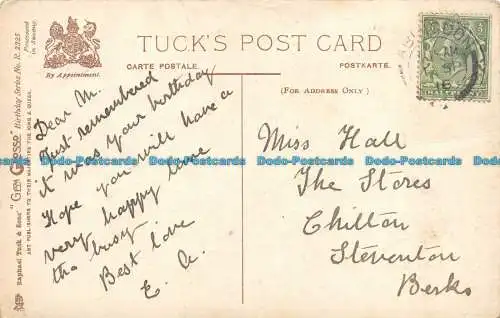 TUCK'S POST CARD
CARTE POSTALE.
POSTKARTE.
By Appointment.
(FOR ADDRESS ONLY)
Raphael Tuck & Sons' "Gem Glosso" Birthday Series No. R. 2725
ART PUBLISHERS TO THEIR MAJESTIES THE KING & QUEEN.
Processed in Saxony.
Dear M.
Just remembered
it was your birthday
Hope you will have a
very happy time
tho busy.
Best love
E. A.
Miss Hall
The Stores
Chilton
Steventon
Berks
Dado-Postcards Dado-Postcards Dado-Postcards Dado-Postcards Dado-Postcards Dado-Postcards